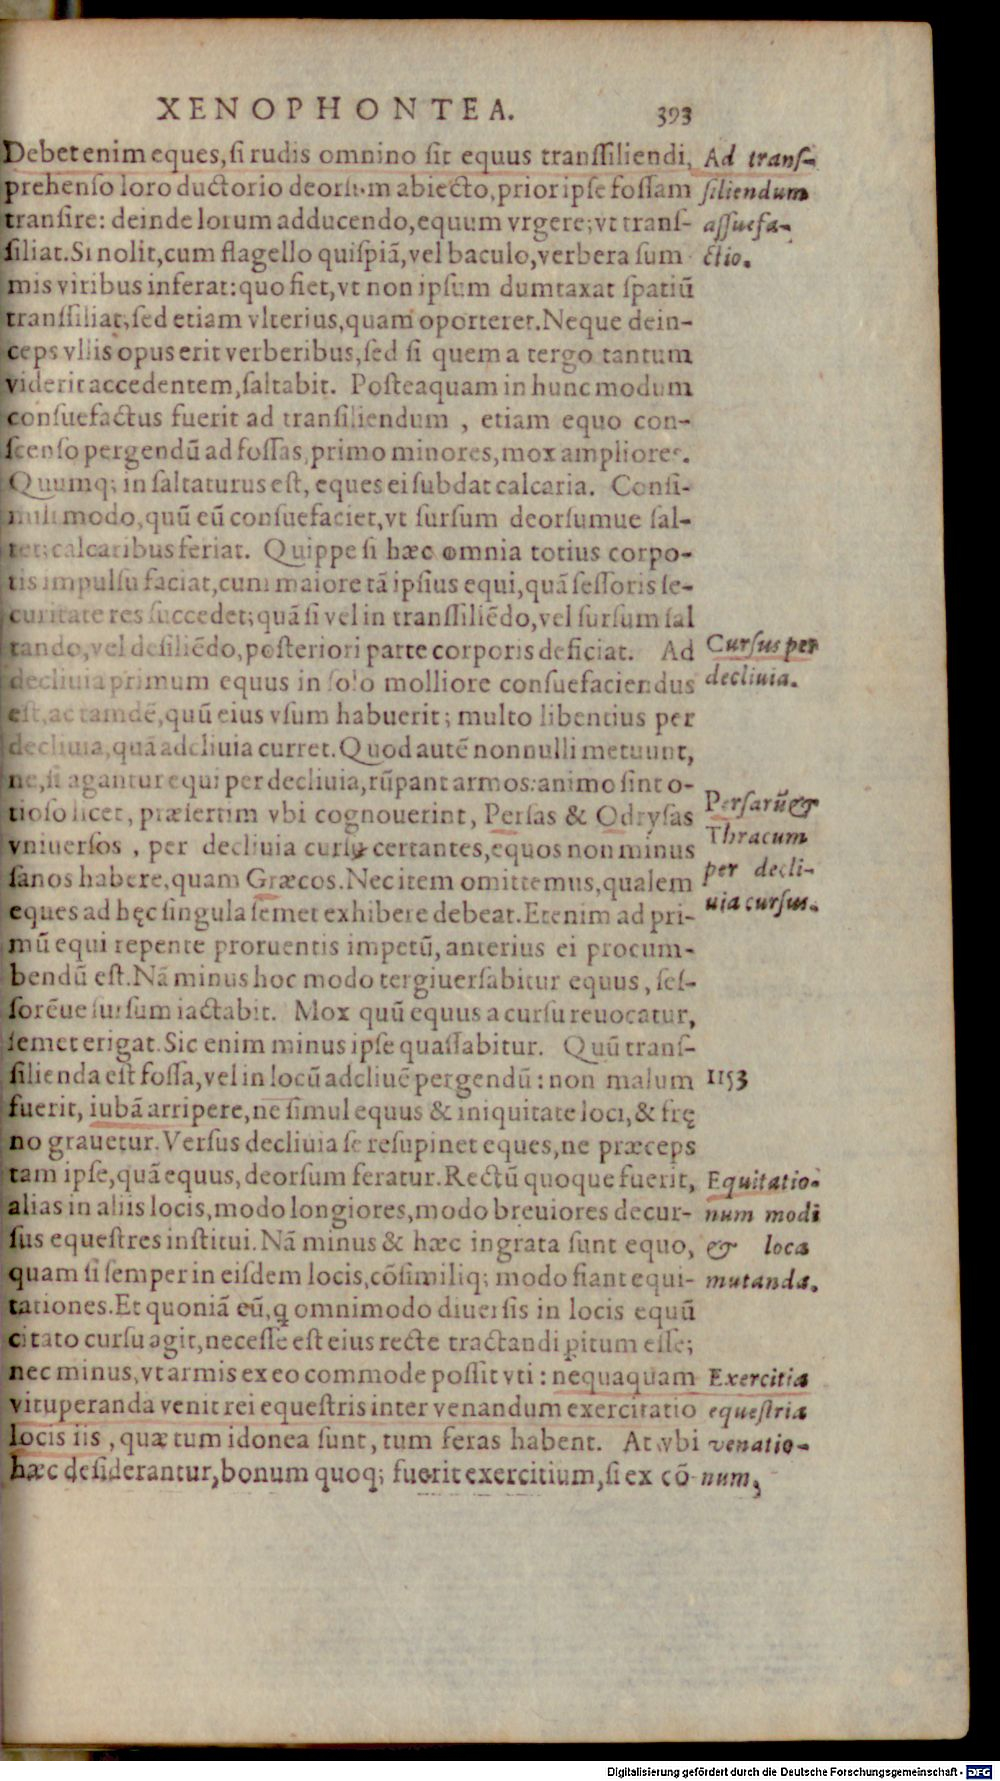 XENOPHONTEA. 393
Debet enim eques, si rudis omnino sit equus transsiliendi,
prehenso loro ductorio deorsum abiecto, prior ipse fossam
transire: deinde lorum adducendo, equum vrgere; vt trans-
siliat. Si nolit, cum flagello quispiã, vel baculo, verbera sum
mis viribus inferat: quo fiet, vt non ipsum dumtaxat spatiũ
transsiliat; sed etiam vlterius, quam oporteret. Neque dein-
ceps vllis opus erit verberibus, sed si quem a tergo tantum
viderit accedentem, saltabit. Posteaquam in hunc modum
consuefactus fuerit ad transiliendum , etiam equo con-
scenso pergendũ ad fossas, primo minores, mox ampliores.
Quumq; in saltaturus est, eques ei subdat calcaria. Consi-
mili modo, quũ eũ consuefaciet, vt sursum deorsumue sal-
tet; calcaribus feriat. Quippe si hæc omnia totius corpo-
ris impulsu faciat, cum maiore tã ipsius equi, quã sessoris se-
curitate res succedet; quã si vel in transsiliẽdo, vel sursum sal
tando, vel desiliẽdo, posteriori parte corporis deficiat. Ad
decliuia primum equus in solo molliore consuefaciendus
est, ac tamdẽ, quũ eius vsum habuerit; multo libentius per
decliuia, quã adcliuia curret. Quod autẽ nonnulli metuunt,
ne, si agantur equi per decliuia, rũpant armos: animo sint o-
tioso licet, præsertim vbi cognouerint, Persas & Odrysas
vniuersos , per decliuia cursu certantes, equos non minus
sanos habere, quam Græcos. Nec item omittemus, qualem
eques ad hęc singula semet exhibere debeat. Etenim ad pri-
mũ equi repente proruentis impetũ, anterius ei procum-
bendũ est. Nã minus hoc modo tergiuersabitur equus, ses-
sorẽue sursum iactabit. Mox quũ equus a cursu reuocatur,
semet erigat. Sic enim minus ipse quassabitur. Quũ trans-
silienda est fossa, vel in locũ adcliuẽ pergendũ: non malum
fuerit, iubã arripere, ne simul equus & iniquitate loci, & frę
no grauetur. Versus decliuia se resupinet eques, ne præceps
tam ipse, quã equus, deorsum feratur. Rectũ quoque fuerit,
alias in aliis locis, modo longiores, modo breuiores decur-
sus equestres institui. Nã minus & hæc ingrata sunt equo,
quam si semper in eisdem locis, cõsimiliq; modo fiant equi-
tationes. Et quoniã eũ, q omnimodo diuersis in locis equũ
citato cursu agit, necesse est eius recte tractandi pitum esse;
nec minus, vt armis ex eo commode possit vti : nequaquam
vituperanda venit rei equestris inter venandum exercitatio
locis iis , quæ tum idonea sunt, tum feras habent. At vbi
hæc desiderantur, bonum quoq; fuerit exercitium, si ex cõ-
Ad trans-
siliendum
assuefa-
ctio.
Cursus per
decliuia.
Persarũ &
Thracum
per decli-
uia cursus.
1153
Equitatio-
num modi
& loca
mutanda.
Exercitia
equestria
venatio-
num.
Digitalisierung gefördert durch die Deutsche Forschungsgemeinschaft - DFG